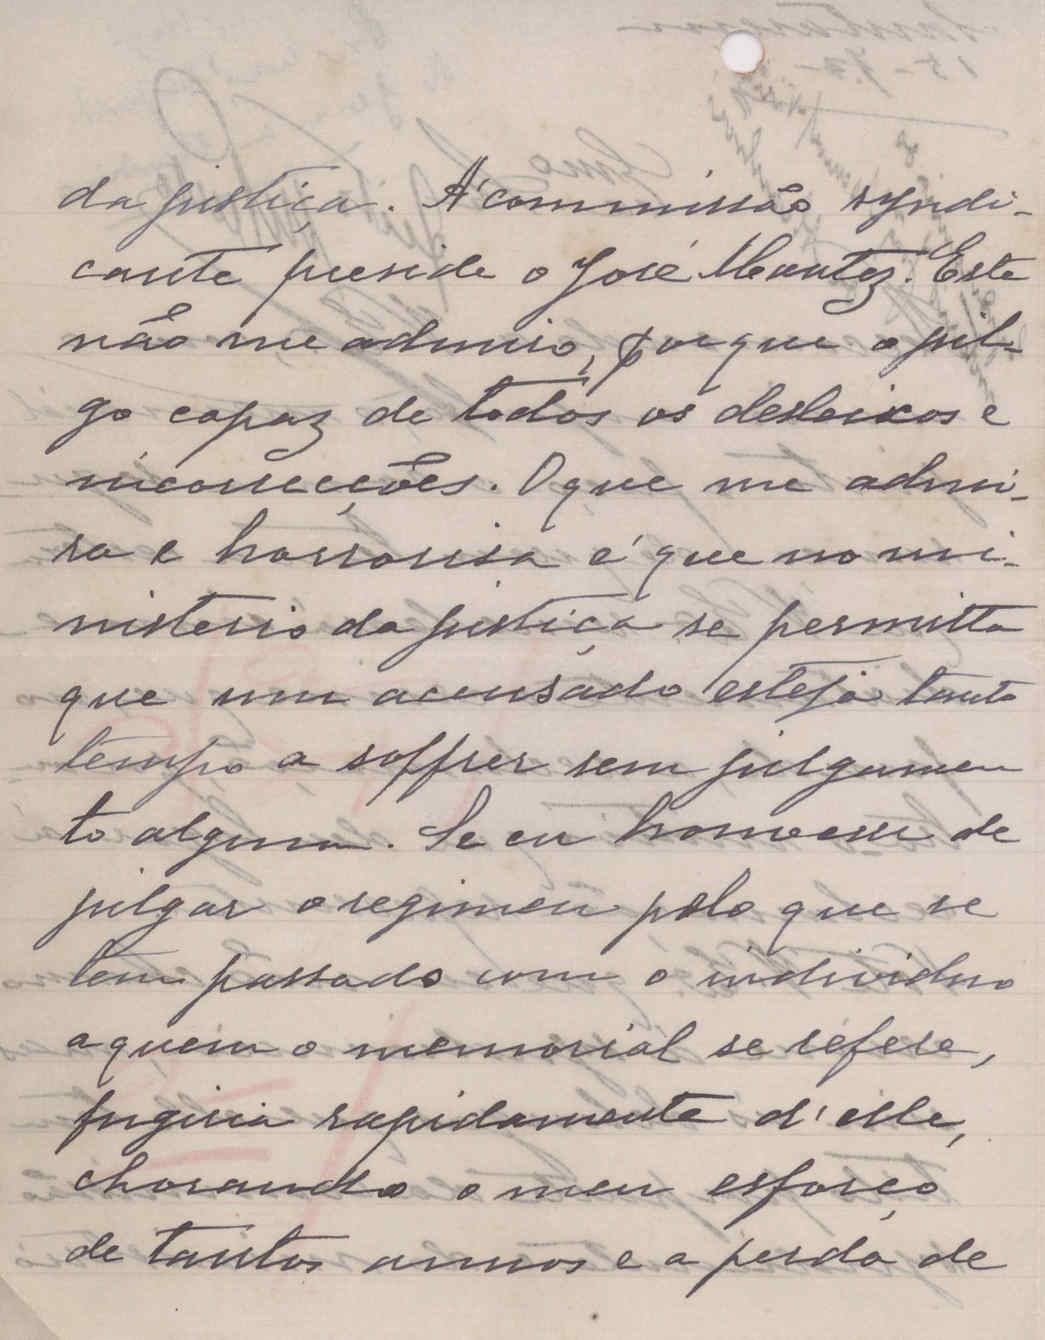 da justiça. A' commissão syndi-
cante preside o José Mantez. Este
não me admiro, porque o jul-
go capaz de todos os desleixos e
incorrecções. O que me admi-
ra e horrorisa é que no mi-
nisterio da justiça se permitta
que um acusado esteja tanto
tempo a soffrer sem julgamen
to algum. Se eu houvesse de
julgar o regimen pelo que se
tem passado com o individuo
a quem o memorial se refere,
fugiria rapidamente d'elle,
chorando o meu esforço
de tantos annos e a perda de